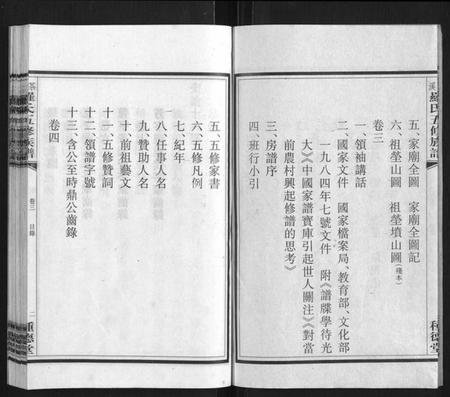 溪羅氏五修族譜
五、家廟全圖　家廟全圖記
六、祖塋山圖　祖塋墳山圖(殘本)
卷三
一、領袖講話
二、國家文件　國家檔案局、教育部、文化部
一九八四年七號文件　附《譜牒學待光
大》《中國家譜寶庫引起世人關注》《對當
前農村興起修譜的思考》
三、房譜序
四、班行小引
種德堂
五、五修家書
六、五修凡例
七、紀年
八、任事人名
九、贊助人名
十、前祖藝文
十一、五修贊詞
十二、領譜字號
十三、含公至時鼎公齒錄
卷四
羅氏五修族譜
卷三　目錄
二
種德堂